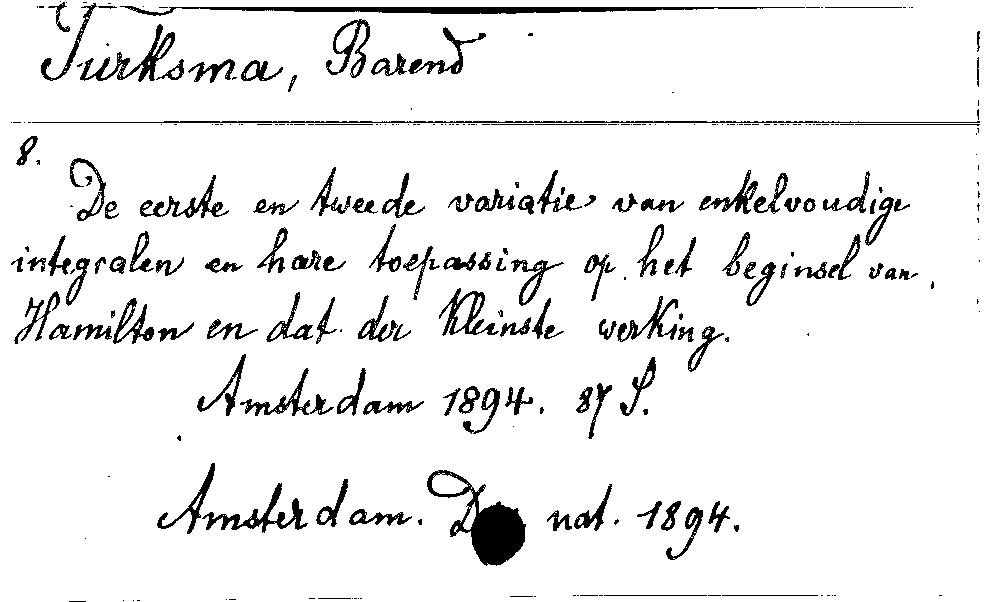 Turksma, Barend
8.
De eerste en tweede variatie van enkelvoudige
integralen en hare toepassing op het beginsel van
Hamilton en dat der kleinste werking.
Amsterdam 1894. 87 S.
Amsterdam. nat. 1894.